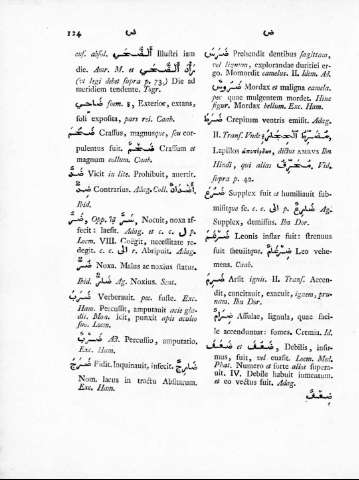 124 ض ض
euf. absol. أَلضَّحَى Illustri jam
die. Amr. M. et رَأْدَ ٱلضُّحَى
(vt legi debet supra p. 73.) Die ad
meridiem tendente. Togr.
ضَاحِى fem. ة, Exterior, extans,
soli exposita, pars rei. Caab.
ضَخْمٌ Crassus, magnusque, seu cor-
pulentus fuit. ضَخْمٌ Crassum et
magnum collum. Caab.
ضَدَّ Vicit in lite. Prohibuit, auertit.
ضِدٌّ Contrarius. Adag. Coll. أَضْدَادٌ
Ibid.
ضَرَّ, Opp. سَرَّ, Nocuit, noxa af-
fecit: laesit. Adag. et c. c. ل p.
Locm. VIII. Coëgit, necessitate re-
degit. c. c. الى r. Abripuit. Adag.
ضُرٌّ Noxa. Malus ac noxius status.
Ibid. ضَارٌّ Ag. Noxius. Sent.
ضَرَبَ Verberauit. pec. fuste. Exc.
Ham. Percussit, amputauit acie gla-
dii. Mow. icit, punxit apis aculeo
suo. Locm.
ضَرْبٌ AB. Percussio, amputatio.
Exc. Ham.
ضَرَجَ Fidit. Inquinauit, infecit. ضَارِجٌ
Nom. lacus in tractu Absitarum.
Exc. Ham.
ضَرَسَ Prehendit dentibus sagittam,
vel lignum, explorandae duritiei er-
go. Momordit camelus. II. Idem. Ad.
ضَرُوسٌ Mordax et maligna camela.
pec. quae mulgentem mordet. Hinc
figur. Mordax bellum. Exc. Ham.
ضَرَطَ Crepitum ventris emisit. Adag.
II. Transf. Vnde
Lapillos dictus AMRVS Ibn
Hindi, qui alias مُحَرِّقٌ Vid.
supra p. 42.
ضَرَعَ Supplex fuit et humiliauit sub-
misitque se. c. c. الى p. ضَارِعٌ Ag.
Supplex, demissus. Ibn Dor.
ضَرْغَمَ Leonis instar fuit: strenuus
fuit saeuiitque. ضِرْغَامٌ Leo vehe-
mens. Caab.
ضَرَمَ Arsit ignis. II. Transf. Accen-
dit, concitauit, exacuit, ignem, pru-
nam. Ibn Dor.
ضِرَامٌ Assulae, lignula, quae faci-
le accenduntur: fomes. Cremia. Id.
ضَعُفَ et ضَعَفَ, Debilis, infir-
mus, fuit, vel euasit. Locm. Mel.
Phat. Numero et forte alios supera-
uit. IV. Debile habuit iumentum,
et eo vectus fuit. Adag.
ضَعْفٌ